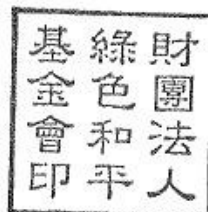 財團法人
綠色和平
基金會印